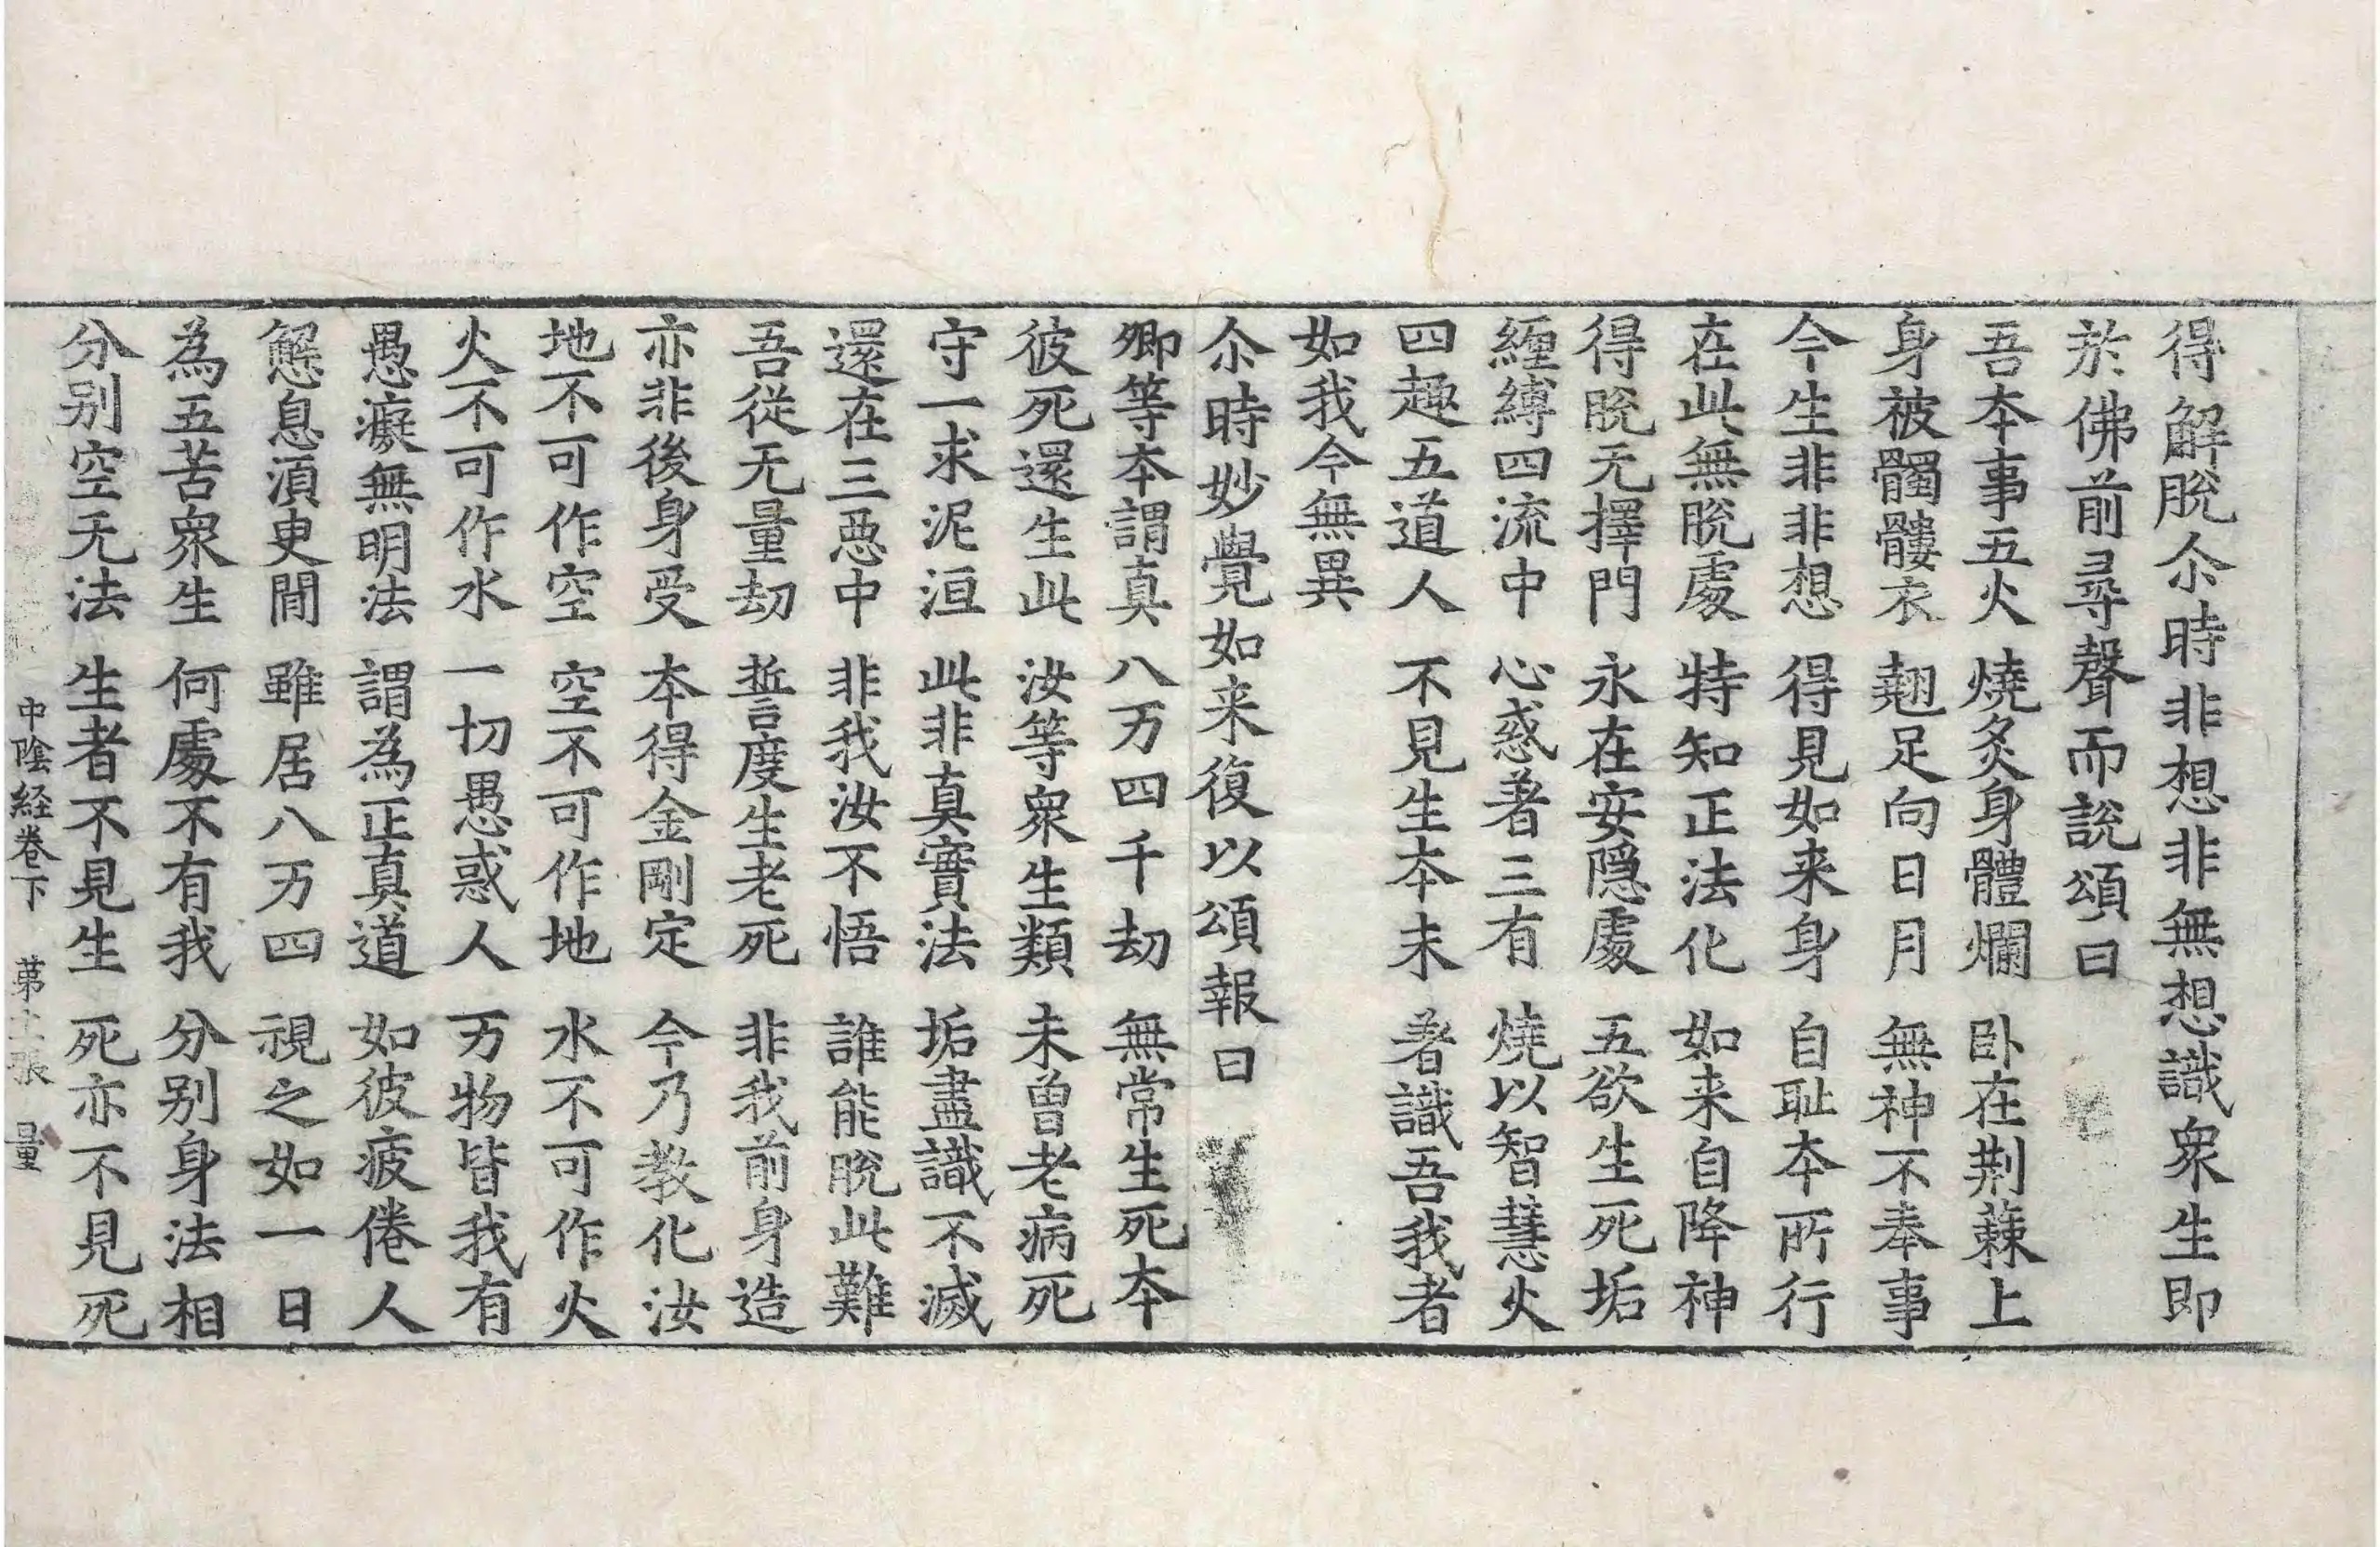 得解脫尒時非想非無想識衆生即
於佛前尋聲而說頌曰
吾夲事五火 燒炙身體爛 卧在荆蕀上
身被髑髏衣 翹足向日月 無神不奉事
今生非非想 得見如来身 自耻夲所行
在此無脫處 特知正法化 如来自降神
得脫无擇門 永在安隠處 五欲生死垢
纒縛四流中 心惑著三有 燒以智慧火
四趣五道人 不見生夲末 著識吾我者
如我今無異
尒時妙覺如来復以頌報曰
卿等夲謂真 八万四千劫 無常生死夲
彼死還生此 汝等衆生類 未曾老病死
守一求泥洹 此非真實法 垢盡識不滅
還在三惡中 非我汝不悟 誰能脫此難
吾從无量劫 誓度生老死 非我前身造
亦非後身受 夲得金剛定 今乃教化汝
地不可作空 空不可作地 水不可作火
火不可作水 一切愚惑人 万物皆我有
愚癡無明法 謂為正真道 如彼疲倦人
懈息湏臾間 雖居八万四 視之如一日
為五苦衆生 何處不有我 分别身法相
分别空无法 生者不見生 死亦不見死
中陰経卷下 苐 張 量